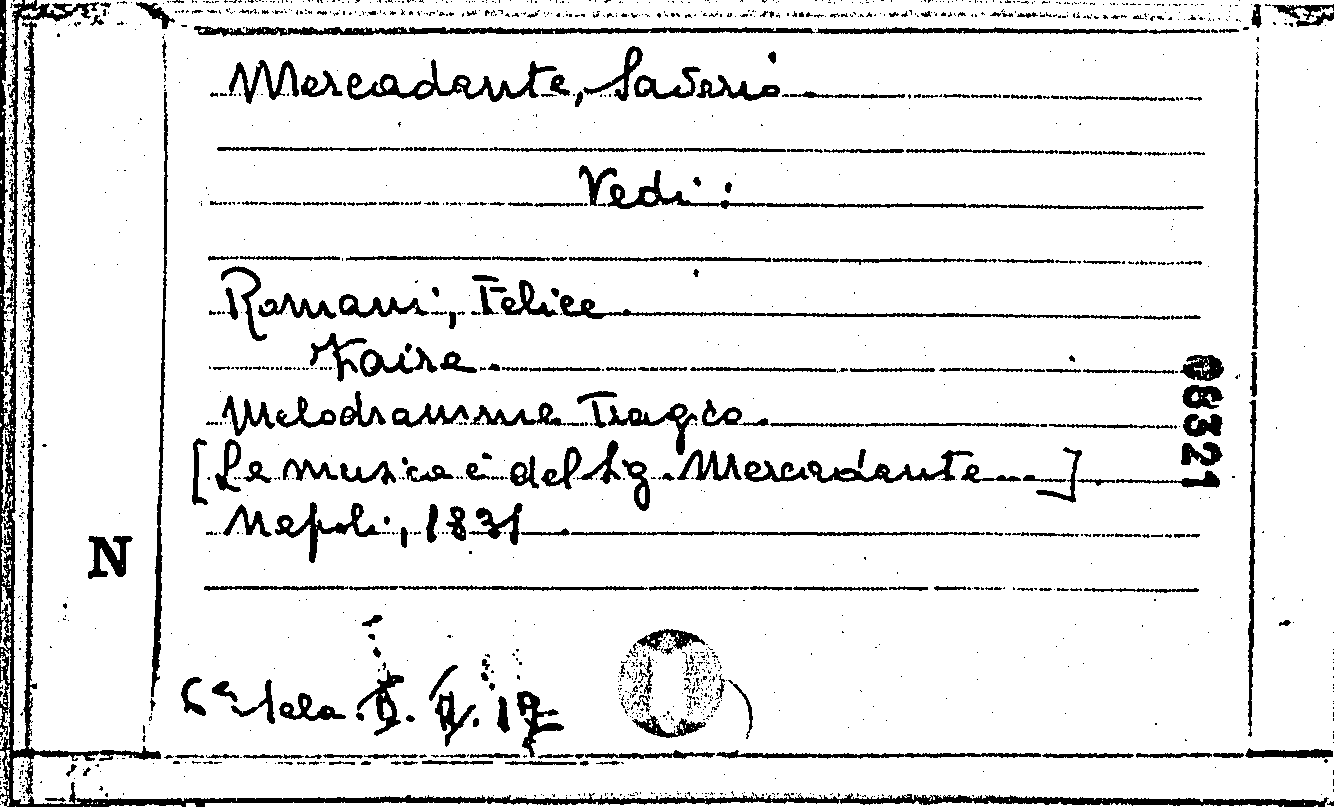 Mercadante, Saverio.
Vedi:
Romani, Felice.
Zaira.
Melodramma Tragico.
[La musica è del Sig. Mercadante...].
Napoli, 1831.
08321
N
6ª Sala.